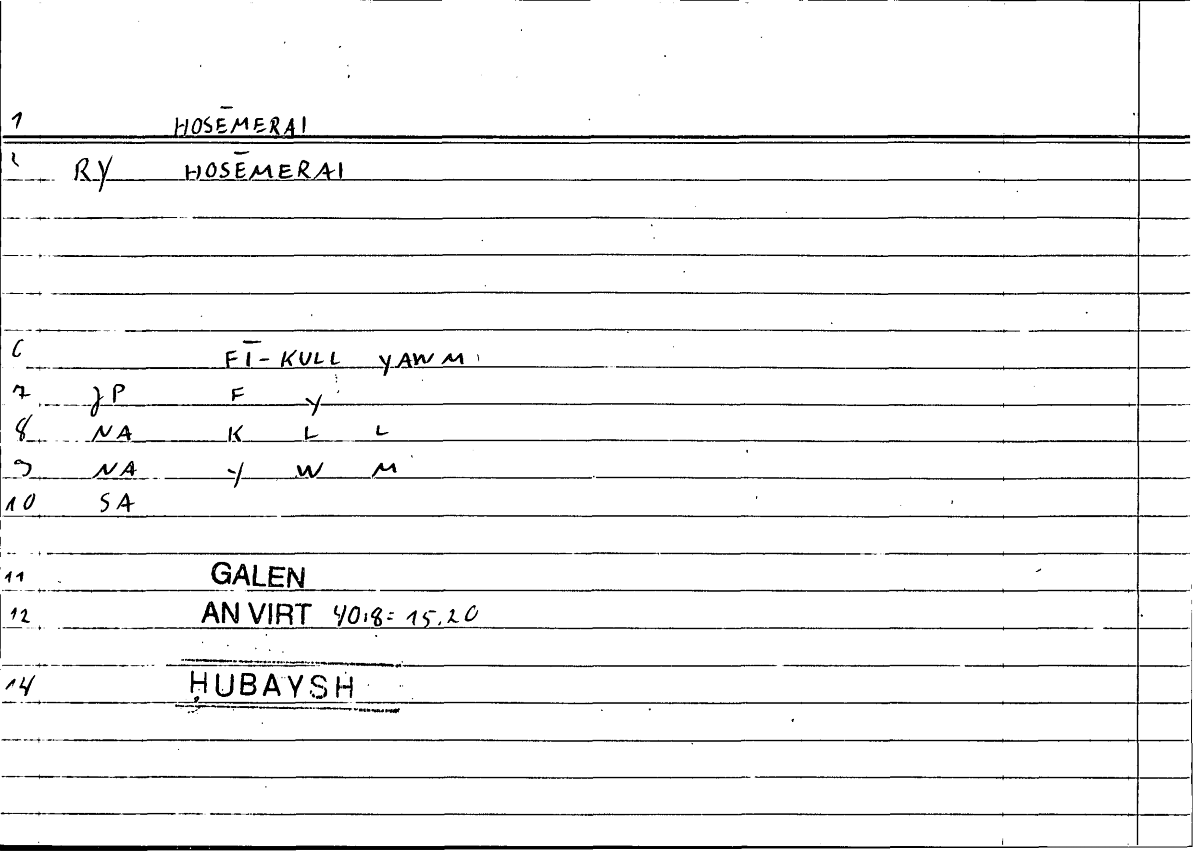 1 HOSĒMERAI
2 RY HOSĒMERAI
6 FĪ-KULL YAWM
7 JP F Y
8 NA K L L
9 NA Y W M
10 SA
11 GALEN
12 AN VIRT 40.8= 15.20
14 ḤUBAYSH